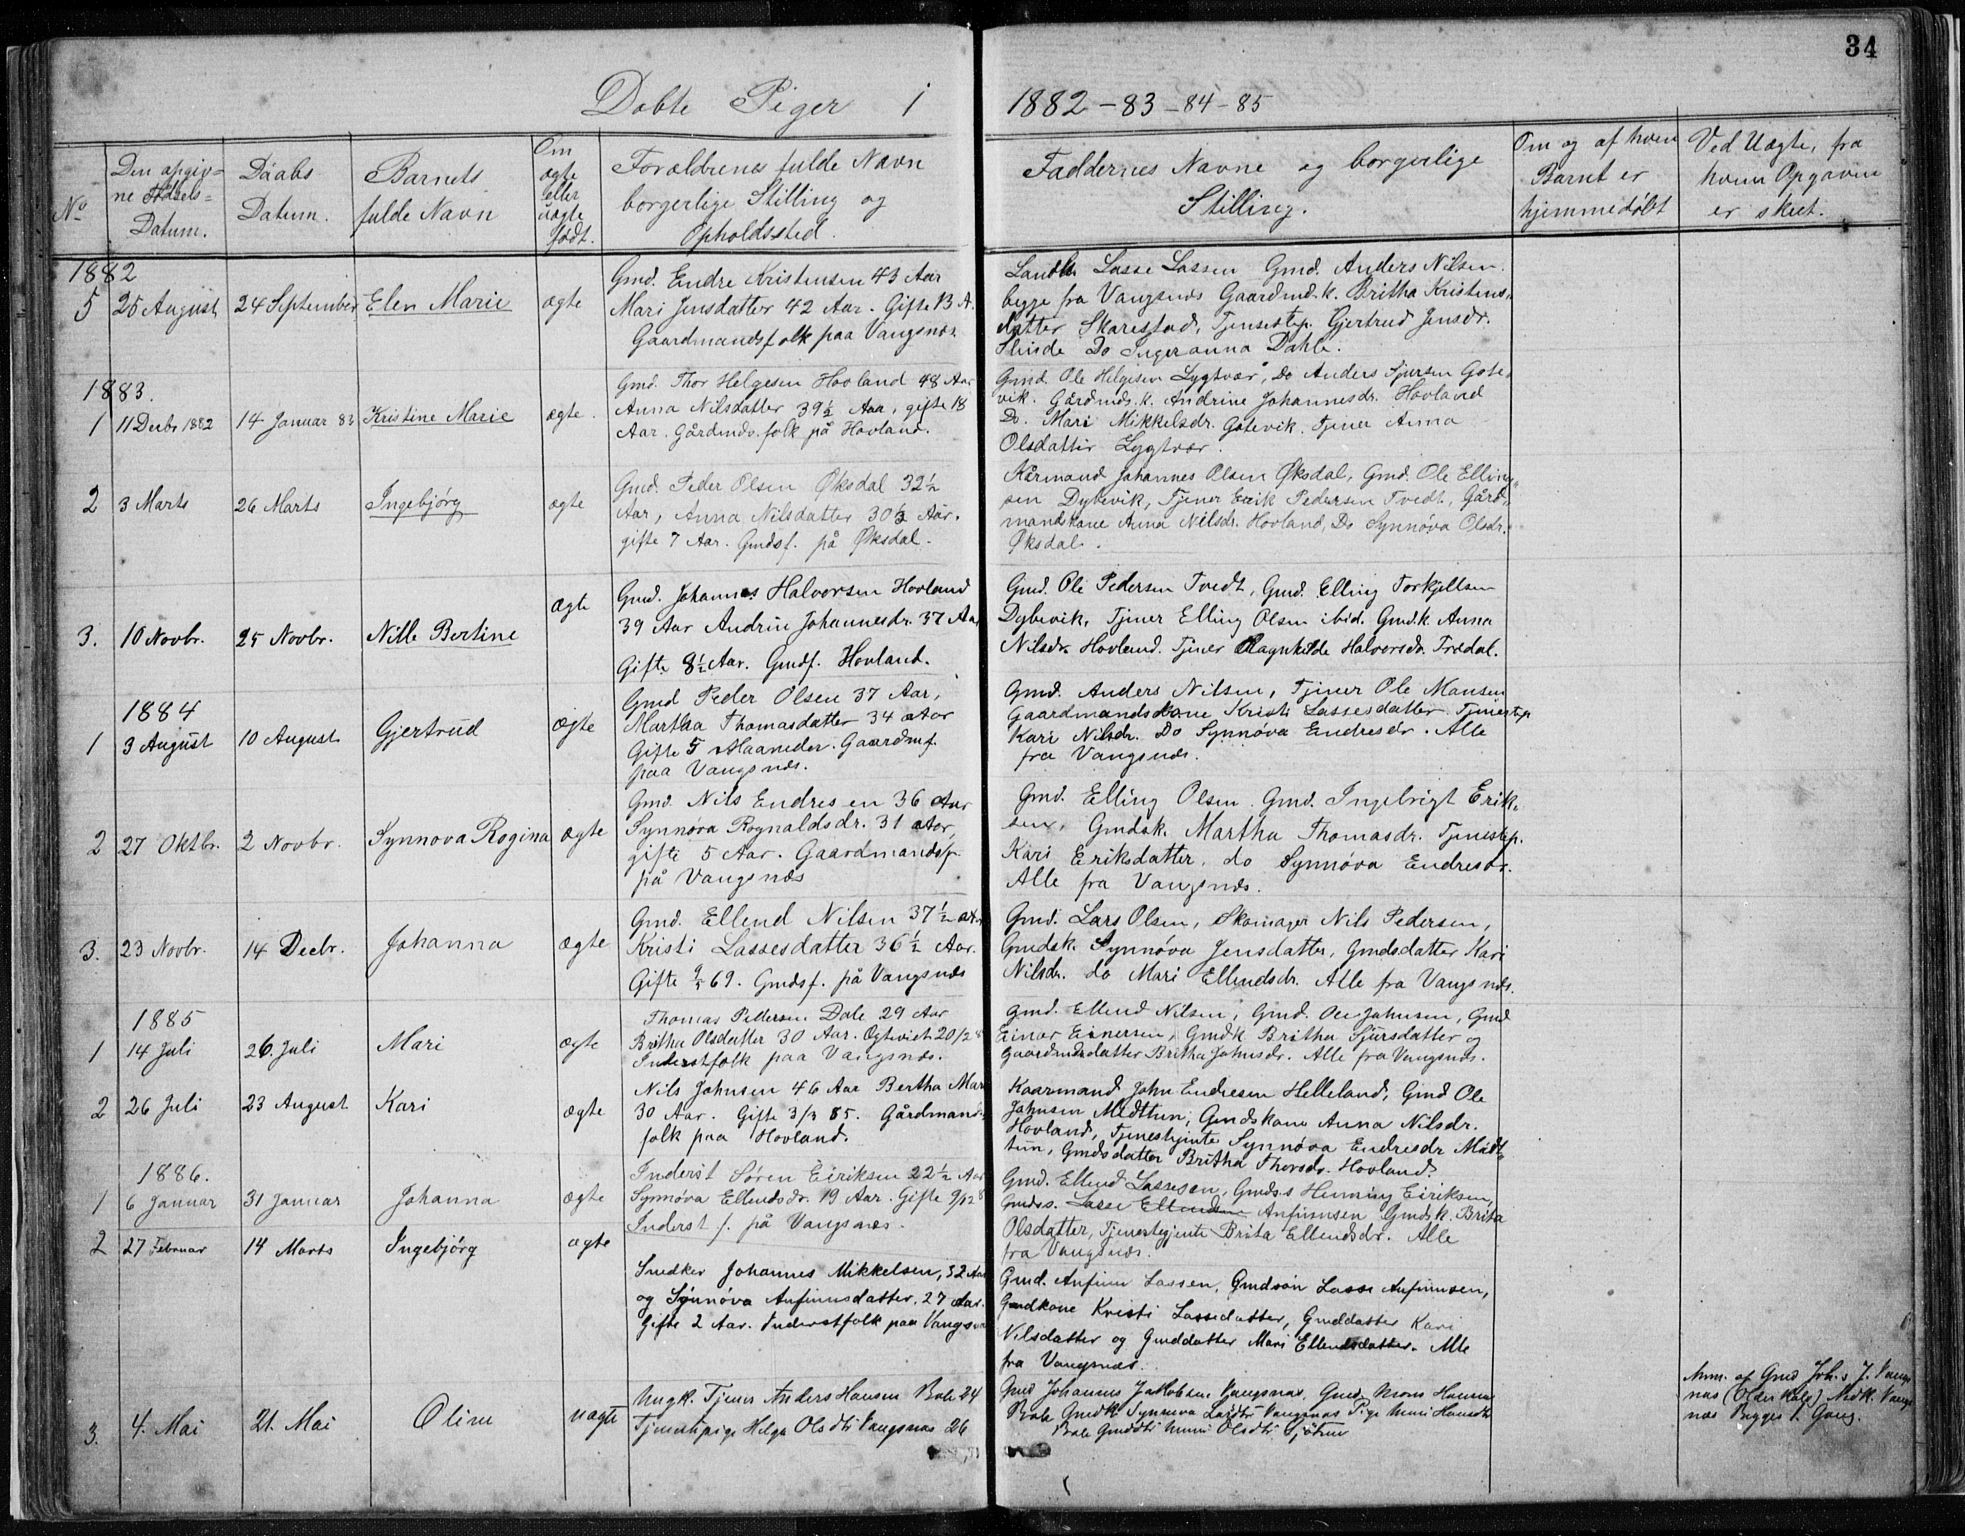 34
Døbte Piger i 1882 - 83 - 84 - 85
No
Den opgiv=
ne Fødsels=
Datum.
Daabs
Datum.
Barnets
fulde Navn
Om
ægte
eller
uægte
født.
Forældrenes fulde Navn
borgerlige Stilling og
Opholdssted.
Faddernes Navne og borgerlige
Stilling.
Om og af hvem
Barnet er
hjemmedøbt
Ved Uægte, fra
hvem Opgaven
er skeet.
1882
5 25 August 24 September Elen Marie ægte
Gmd. Endre Kristensen 43 Aar
Mari Jensdatter 42 Aar. Gifte 13 A.
Gaardmandsfolk paa Vangsnæs
Lasse Lassen Gmd. Anders Nilsen.
begge fra Vangsnæs Gaardmd.k. Britha Kristens-
datter Skarestad, Tjenestep. Gjertrud Jensdr.
Slinde Do Ingeranna Dahle.
1883.
1 11 Decbr 1882 14 Januar 83 Kristine Marie ægte.
Gmd. Thor Helgesen Hovland 48 Aar
Anna Nilsdatter 39½ Aar, gifte 18
Aar. Gårdmds.folk på Hovland.
Gmd. Ole Helgesen Lygtvær, Do Anders Sjursen Gote-
vik. Gårdmds.k. Andrine Johannesdr. Hovland
Do. Mari Mikkelsdr. Gotevik. Tjener Anna
Olsdatter Lygtvær.
2 3 Marts 26 Marts Ingebjörg ægte
Gmd. Peder Olsen Øksdal 32½
Aar, Anna Nilsdatter 30⅓ Aar.
gifte 7 Aar. Gmdsf. på Øksdal.
Kårmand Johannes Olsen Øksdal, Gmd. Ole Elling-
sen Dybevik, Tjener Erik Pedersen Tvedt, Gård-
mandskone Anna Nilsdr. Hovland, Do Synnóva Olsdr.
Øksdal.
3. 10 Novbr. 25 Novbr. Nille Bertine ægte
Gmd. Johannes Halvorsen Hovland
39 Aar Andrine Johannesdr. 37 Aar
Gifte 8½ Aar. Gmdf. Hovland.
Gmd. Ole Pedersen Tvedt, Gmd. Elling Torkjellsen
Dybevik, Tjener Elling Olsen ibid. Gmd.k. Anna
Nilsdr. Hovland. Tjener Ragnhilde Halvorsdr. Tredal.
1884
1 3 August 10 August Gjertrud ægte
Gmd Peder Olsen 37 Aar,
Martha Thomasdatter 34 Aar
Gifte 5 Maaneder. Gaardmf.
paa Vangsnæs.
Gmd. Anders Nilsen, Tjener Ole Monsen
Gaardmandskone Kristi Lassesdatter. Tjenestep
Kari Nilsdr. Do Synnóva Endresdr. Alle
fra Vangsnæs.
2 27 Oktbr. 2 Novbr. Synnova Rogina ægte
Gmd. Nils Endresen 36 Aar
Synnóva Rognaldsdr. 31 Aar,
gifte 5 Aar. Gaardmandsf.
på Vangsnæs
Gmd. Elling Olsen. Gmd. Ingebrigt Erik-
sen, Gmdsk. Martha Thomasdr. Tjenestep.
Kari Eriksdatter, do Synnóva Endresdr.
Alle fra Vangsnæs.
3. 23 Novbr. 14 Decbr. Johanna ægte
Gmd. Ellend Nilsen 37½ Aar
Kristi Lassesdatter 36½ Aar.
Gifte 9/5 69. Gmdsf. på Vangsnæs
Gmd. Lars Olsen, Skomager Nils Pedersen,
Gmdsk. Synnóva Jensdatter, Gmdsdatter Kari
Nilsdr. do Mari Ellendsdr. Alle fra Vangsnæs.
1885
1 14 Juli 26. Juli Mari ægte
Thomas Pedersen Dale 29 Aar
Britha Olsdatter 30 Aar. Ægteviet 20/2 8
Inderstfolk paa Vangsnæs.
Gmd. Ellend Nilsen, Gmd. Ole Johnsen, Gmd
Einar Einersen, Gmdk Britha Sjursdatter og
Gaardmdsdatter Britha Johnsdr. Alle fra Vangsnæs.
2 26 Juli 23 August Kari ægte
Nils Johnsen 46 Aar Bertha Mar
30 Aar. Gifte 3/3 85. Gårdmands-
folk paa Hovland.
Kaarmand John Endresen Helleland, Gmd Ole
Johnsen Midttun, Gmdskone Anna Nilsdr.
Hovland, Tjenestjente Synnóva Endresdr Midt-
tun, Gmdsdatter Britha Thorsdr. Hovland.
1886.
1 6 Januar 31 Januar Johanna ægte
Inderst Søren Eiriksen 22½ Aar
Synnóva Ellendsdr. 19 Aar. Gifte 9/12 8
Inderst f. på Vangsnæs.
Gmd. Ellend Lassesen, Gmds.s Henning Eiriksen,
Gmds.s. Lasse Ellendsen Anfinnsen Gmdsk. Brita
Olsdatter, Tjenestegjente Brita Ellendsdr. Alle
fra Vangsnæs.
2 27 Februar 14 Marts Ingebjörg ægte
Snedker Johannes Mikkelsen, 32 Aar
og Synnóva Anfinnsdatter, 27 Aar.
Gifte 2 Aar. Inderstfolk paa Vangsnæs
Gmd. Anfinn Lassen, Gmdsøn Lasse Anfinnsen,
Gmdkone Kristi Lassedatter, Gmddatter Kari
Nilsdatter og Gmddatter Mari Ellendsdatter. Alle
fra Vangsnæs.
3. 4. Mai 21. Mai Oline uægte
Ungk. Tjener Anders Hansen Bale 24
Tjenestpige Helga Olsdtr Vangsnæs 26
Gmd Johannes Jakobsen Vangsnæs, Gmd. Mons Hansen
Bale Gmdk Synneva Vangsnæs Pige Mari Hansdtr
Bale Gmddtr Mari Olsdtr
Anm. af Gmd Johs J. Vangs
næs Vangs
næs Begges 1. Gang.